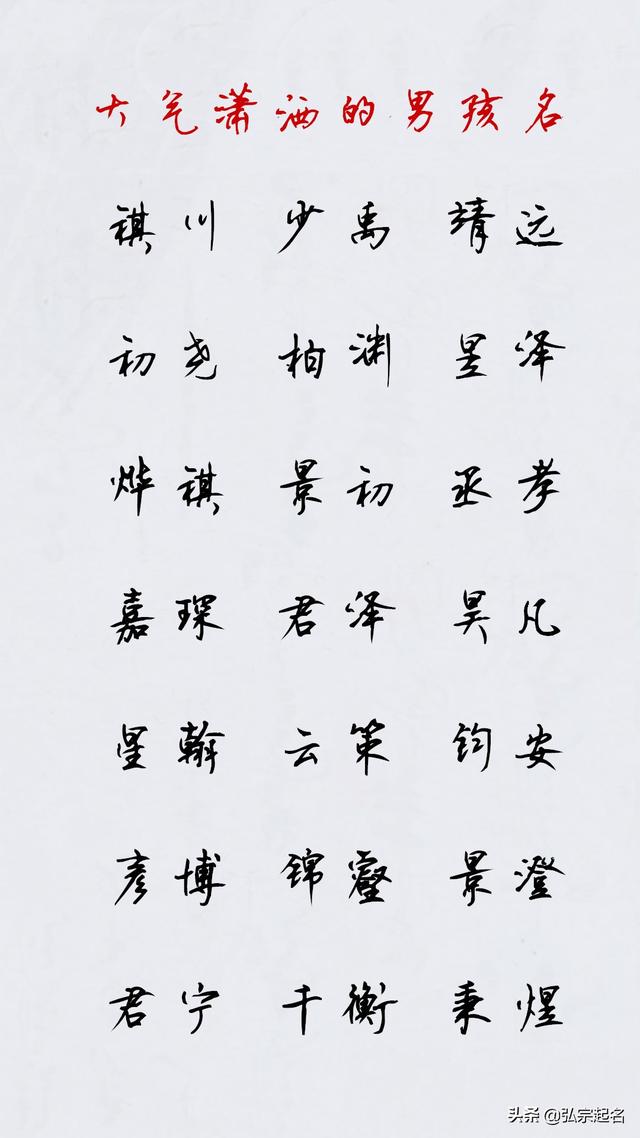 大气潇洒的男孩名
祺川 少禹 靖远
初尧 柏渊 昱泽
烨祺 景初 丞孝
嘉琛 君泽 昊凡
星翰 云策 钧安
彦博 锦睿 景澄
君宁 千衡 秉煜
头条 @弘宗起名